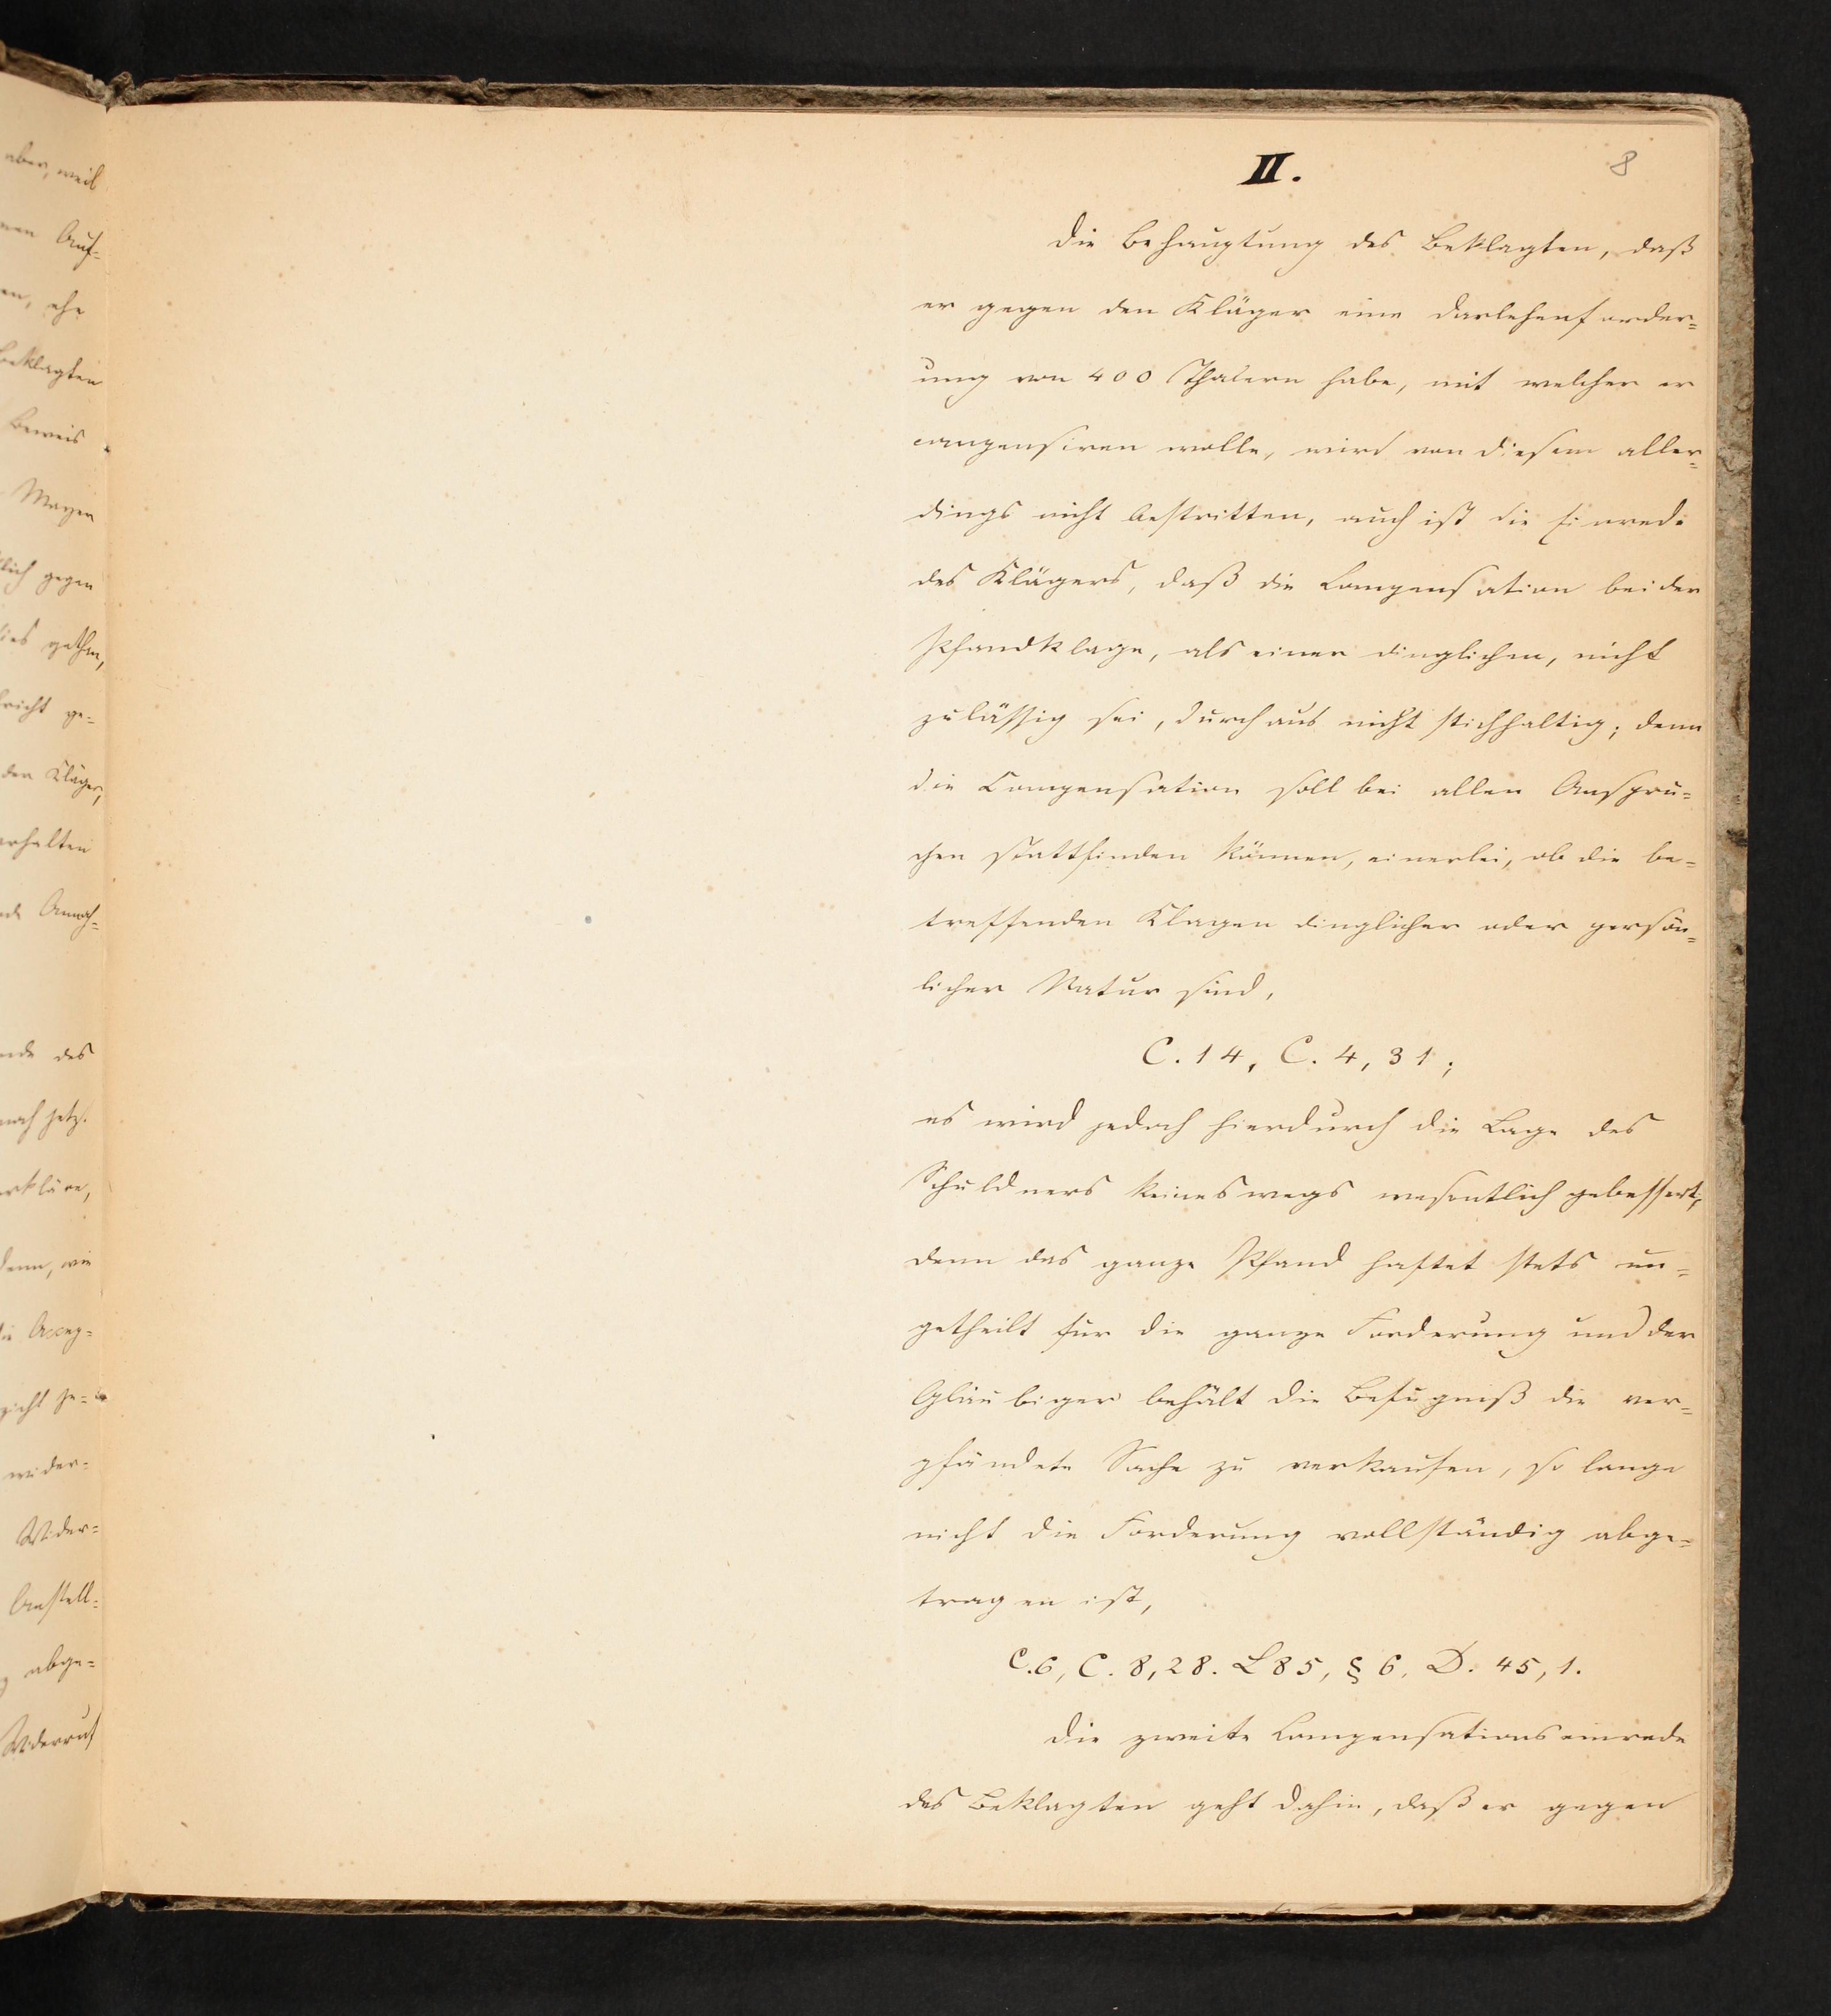 aber, weil
Auf-
ehe
Beklagten
Beweis
Mayer
gegen
ge-
den Kläger,
erhalten
des
noch jetz.
erkläre,
denn, wie
wider-
Wider-
abge-
Widerruf
II.
8
Die Behauptung des Beklagten, daß
er gegen den Kläger eine Darlehensforder=
ung von 400 Thalern habe, mit welcher er
compensiren wolle, wird von diesem aller=
dings nicht bestritten, auch ist die Einrede
des Klägers, daß die Compensation bei der
Pfandklage, als einer dinglichen, nicht
zulässig sei, durchaus nicht stichhaltig; denn
die Compensation soll bei allen Ansprü=
chen stattfinden können, einerlei, ob die be=
treffenden Klagen dinglicher oder persön=
licher Natur sind,
C. 14, C. 4, 31;
es wird jedoch hierdurch die Lage des
Schuldners keineswegs wesentlich gebessert,
denn das ganze Pfand haftet stets un=
getheilt für die ganze Forderung und der
Gläubiger behält die Befugniß die ver=
pfändete Sache zu verkaufen, so lange
nicht die Forderung vollständig abge=
tragen ist,
C. 6, C. 8, 28. L 85, § 6. D. 45, 1.
Die zweite Compensationseinrede
des Beklagten geht dahin, daß er gegen